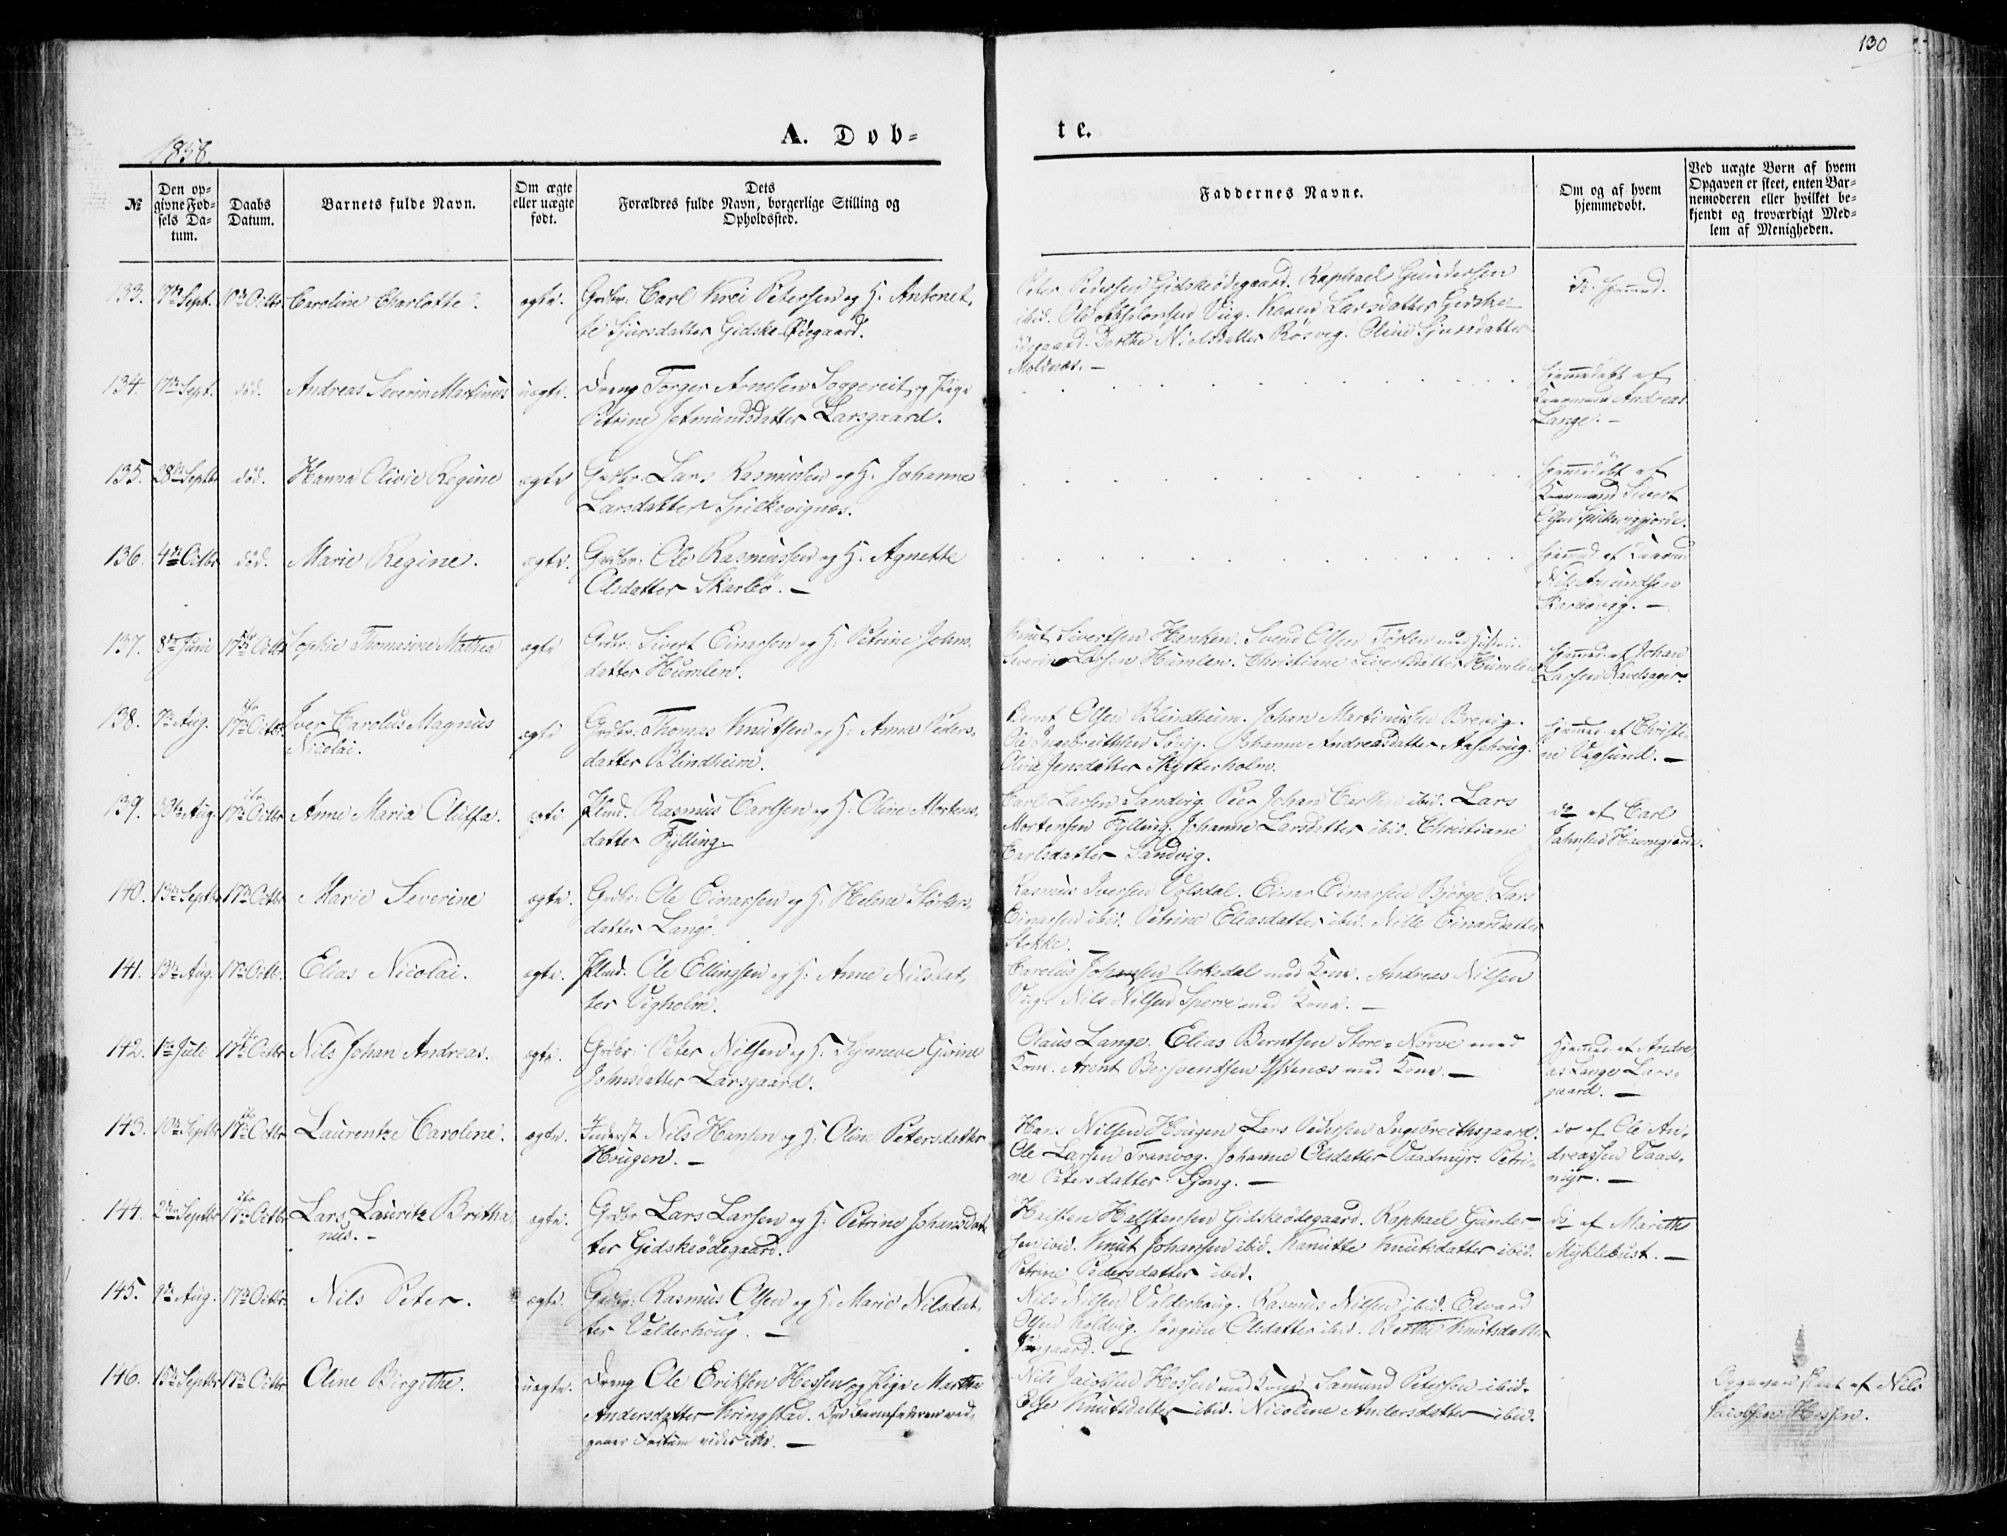 130
1858.
A. Døb-
te.
№
Den op-
givne Fød-
sels Da-
tum.
Daabs
Datum.
Barnets fulde Navn.
Om ægte
eller uægte
født.
Dets
Forældres fulde Navn, borgerlige Stilling og
Opholdssted.
Faddernes Navne.
Om og af hvem
hjemmedøbt.
Ved uægte Børn af hvem
Opgaven er skeet, enten Bar-
nemoderen eller hvilket be-
kjendt og troværdigt Med-
lem af Menigheden.
133. 17de Sept. Octbr Caroline Charlotte. ægte. Grdbr: Carl Petersen og H: Antonet,
te Sjursdatter Gidske Ødegaard.
Peter Pedersen Gidskeödegaard. Raphael Gundersen
ibid. Ole Larsdatter Gidske
ödegaard. Berthe Nielsdatter Rösvig. Oline Sjursdatter
Molnæs. —
134. 17de Sept. död. Andreas Severin Martinus uægte. Dreng Torger Arnesen og Pige
Petrine Jetmundsdatter Larsgaard.
hjemmedöbt af
Andreas
Lange. —
135. 28de Septbr död. Hanna Olivie Regine ægte Grdbr. Lars Rasmussen og H. Johanne
Larsdatter Spilkevignæs.
hjemmedöbt af
Sivert
136. 4de Octbr död. Marie Regine. ægte. Grdbr: Ole Rasmussen og H. Agnette
Olsdatter Skarbö. —
Nils Amundsen
137. 8de Juni 17de Octbr Sophie Thomasine Mathea ægte Grdbr: Sivert Einarsen og H: Petrine Johns,
datter Humlen.
Knut Sivertsen Hanken. Svend Olsen med
Severin Larsen Humlen. Christiane Sivertsdatter Humlen
hjemmed. af Johan
Larsen
138. 7de Aug. 17de Octbr Iver Carolus Magnus
Nicolai. ægte Grdbr: Thomas Knutsen og H: Anne Peders,
datter Blindheim.
Bernt Olsen Blindheim. Johan Martinussen Brevig.
Ole Ingebrethsen Johanne Andreasdatter
Oline Jensdatter Skytterholm.
hjemmed. af Christi-
ne Vegsund. —
139. 30te Aug. 17de Octbr Anne Maria Oluffa. ægte Plad. Rasmus Carlsen og H: Oline Mortens,
datter Fylling.
Carl Larsen Sandvig. Peer Johan Carlsen ibid. Lars
Mortensen Fylling. Johanne Larsdatter ibid. Christiane
Carlsdatter Sandvig.
do af Carl
140. 13de Septbr 17de Octbr Marie Severine ægte. Grdbr: Ole Einarsen og H: Helene
datter Lange.
Rasmus Iversen Volsdal. Einar Einarsen Björge. Lars
Einarsen ibid. Petrine Eliasdatter ibid. Nille Einarsdatter
Stokke.
141. 13de Aug. 17de Octbr. Elias Nicolai. ægte. Plad. Ole Ellingsen og H: Anne Nilsdat,
ter Vigholm.
Carolus Johansen Urkedal med Kone. Andreas Nilsen
Nils Nilsen Sperre med Kone. —
142. 1ste Juli 17de Octbr Nils Johan Andreas. ægte. Grdbr: Peter Nilsen og H: Synneve Gurine
Johnsdatter Larsgaard.
Claus Lange. Elias Berntsen Store-Nörve med
Kone. Arent med Kone. —
hjemmed. af Andre
as Lange Lars-
gaard. —
143. 10de Septbr 17de Octbr Laurentze Caroline. ægte. Inderst Nils Hansen og H: Oline Petersdatter
Hougen. —
Hans Nilsen Hougen. Lars Pedersen Ingebrethsgaard.
Ole Larsen Tranvog. Johanne Olsdatter Vaadmyr. Petri-
ne Petersdatter —
do af Ole An-
dreassen Vaad-
myr. —
144. 2den Septbr 17de Octbr Lars Lauritz Britha-
nus. — ægte. Grdbr Lars Larsen og H: Petrine Johansdat
ter Gidskeödegaard.
Halsten Halstensen Gidskeödegaard. Raphael Gunder-
sen ibid. Knut Johansen ibid. Hanitte Knutsdatter ibid.
Petrine Pedersdatter ibid.
do af Marethe
Myklebust. —
145. 9de Aug. 17de Octbr Nils Peter. ægte. Grdbr: Rasmus Olsen og H: Marie Nilsdat,
ter Valderhoug. —
Nils Nilsen Valderhaug. Rasmus Nilsen ibid. Edvard
Olsen Jörgine Olsdatter ibid. Berthe Knutsdatter
146. 15de Septbr 17de Octbr Oline Birgithe. uægte. Dreng Ole Eriksen Hessen og Pige Marthe
Andersdatter Kringstad.
Nils Jacobsen Hessen med Kone. Samund Petersen ibid.
Else Knutsdatter ibid. Nicoline Andersdatter ibid.
Opgaven skeet af Nils
Jacobsen Hessen.